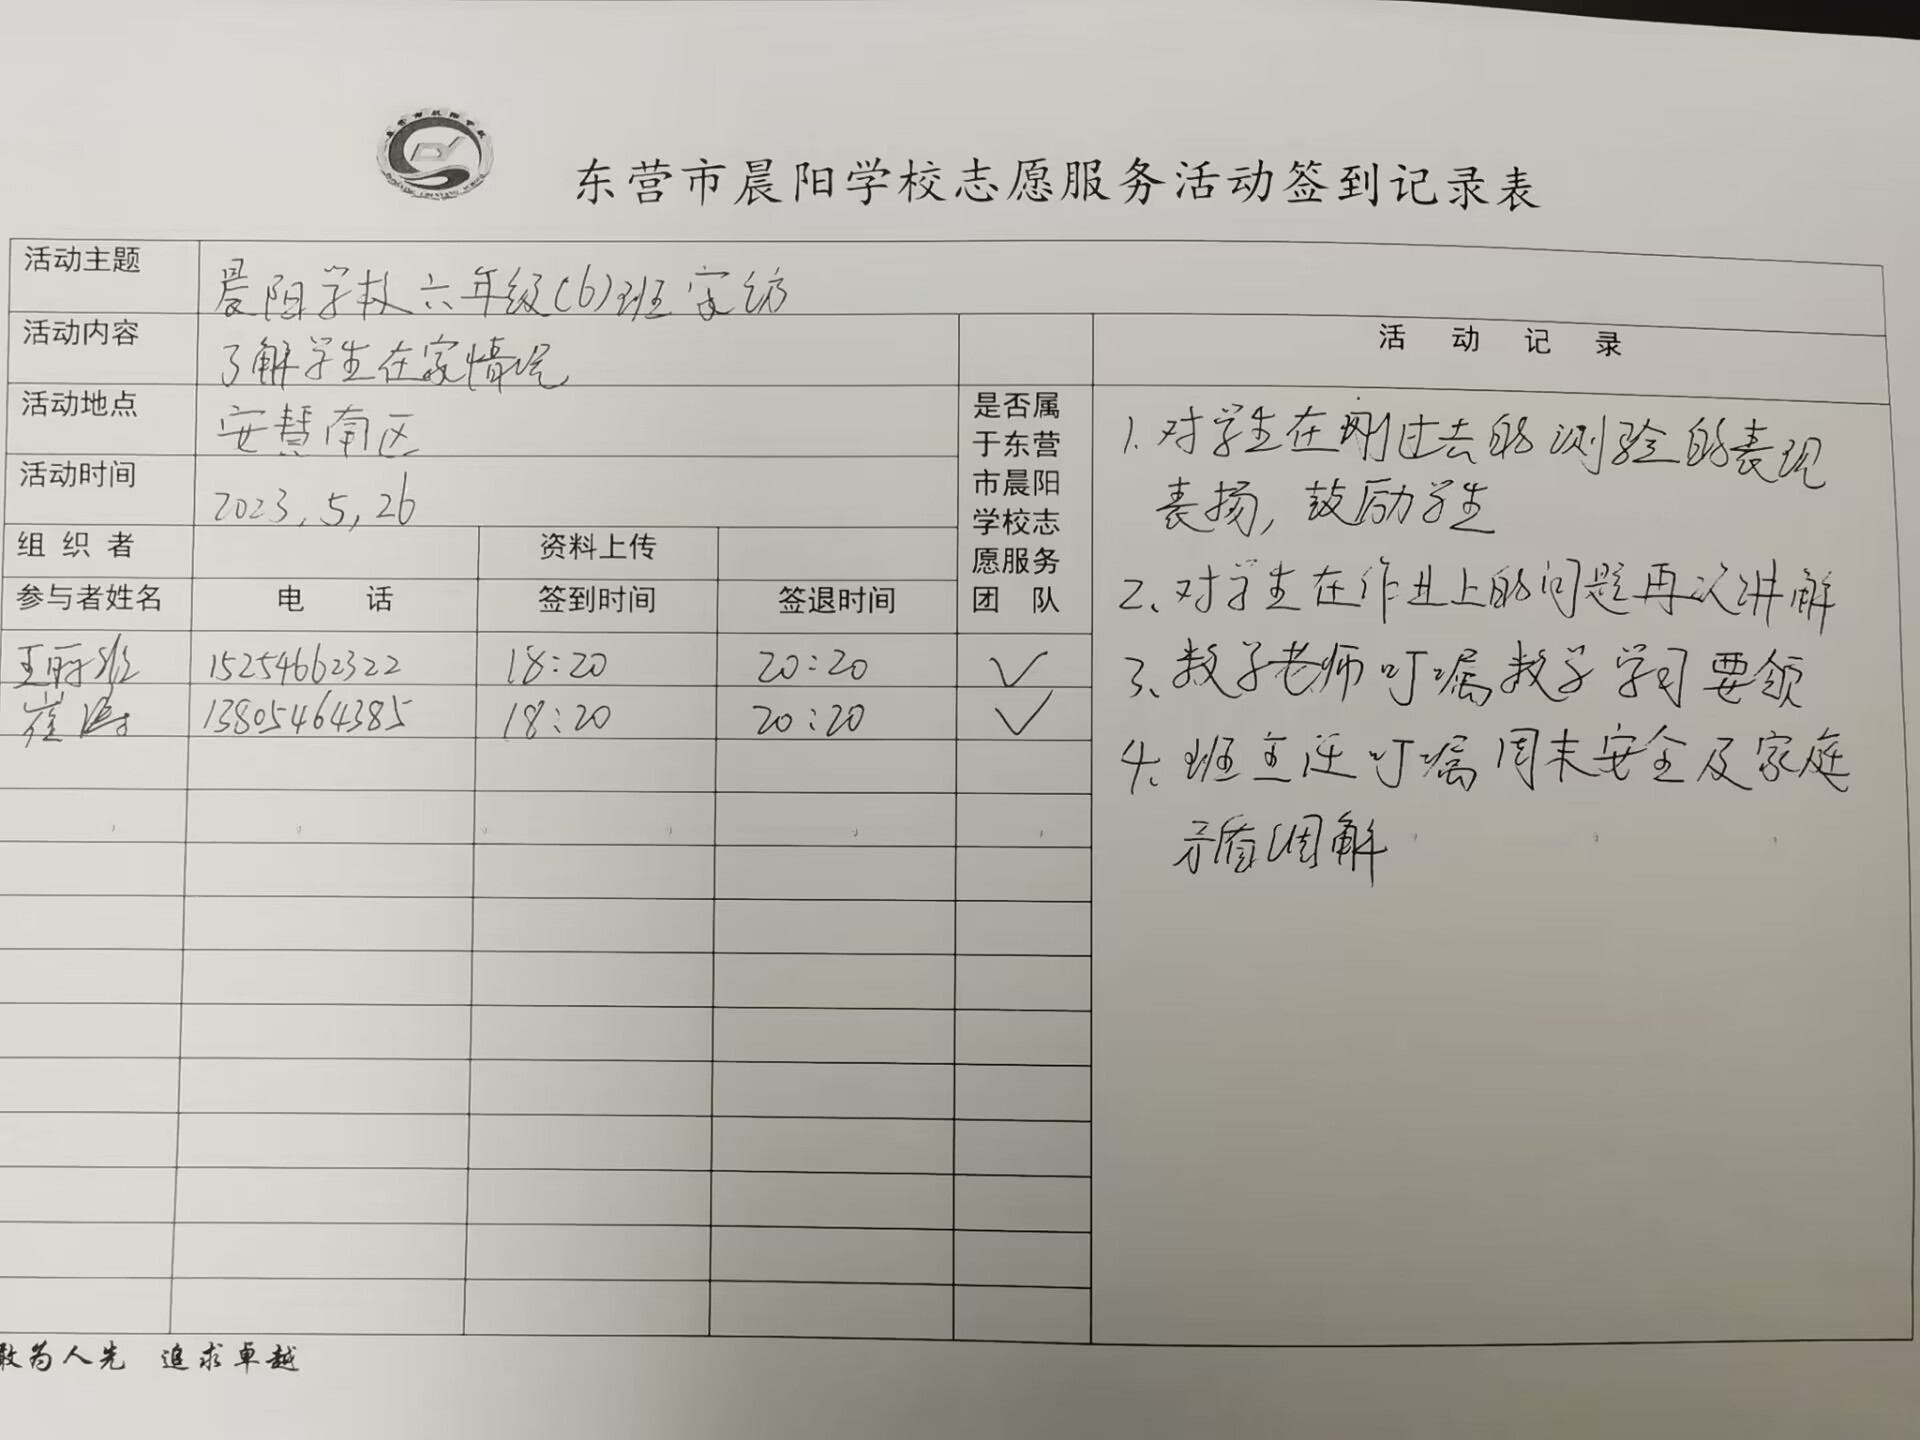 东营市晨阳学校志愿服务活动签到记录表
活动主题 晨阳学校六年级(6)班家访
活动内容 了解学生在家情况
活动记录
活动地点 安慧南区
活动时间 2023.5.26
组织者 资料上传
参与者姓名 电话 签到时间 签退时间
是否属
于东营
市晨阳
学校志
愿服务
团队
王丽 15254662322 18:20 20:20 ✓
崔 13805464385 18:20 20:20 ✓
1. 对学生在刚过去的测验的表现
表扬,鼓励学生
2、对学生在作业上的问题再次讲解
3、数学老师叮嘱数学学习要领
4、班主任叮嘱周末安全及家庭
矛盾调解
敢为人先 追求卓越